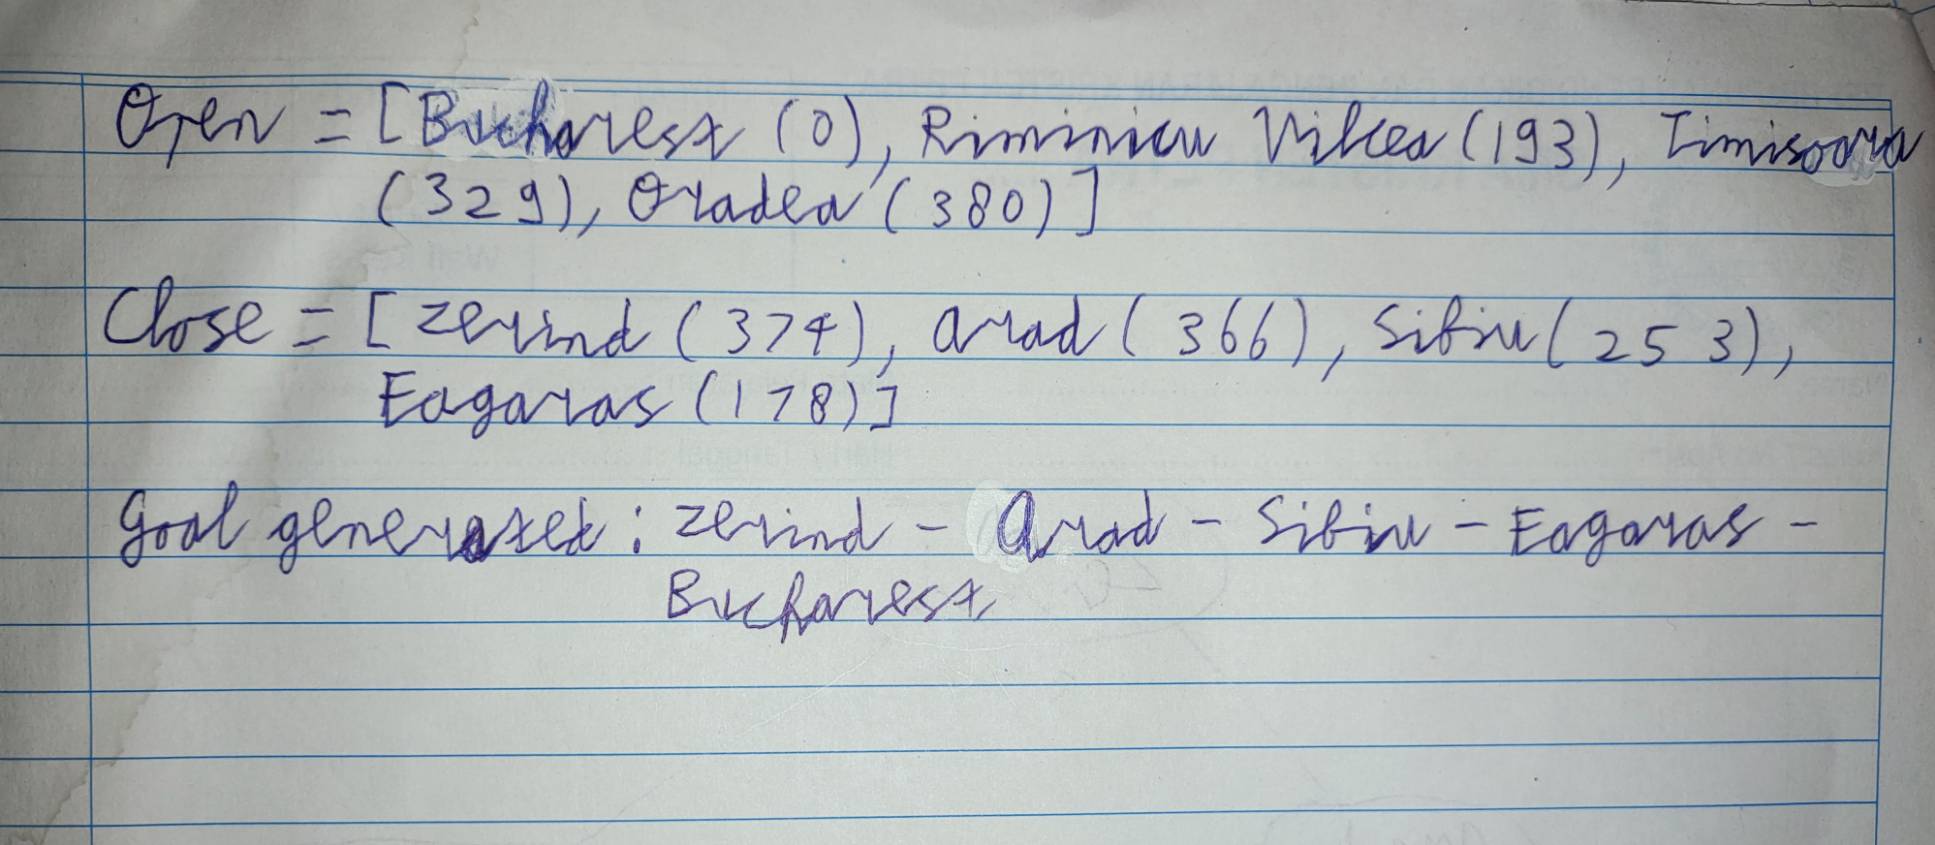 Open = [Bucharest (0), Riminicu Vilcea (193), Timisoara
(329), Oradea (380)]
Close = [Zerind (374), Arad (366), Sibiu (253),
Eagaras (178)]
Goal generated : Zerind - Arad - Sibiu - Eagaras -
Bucharest